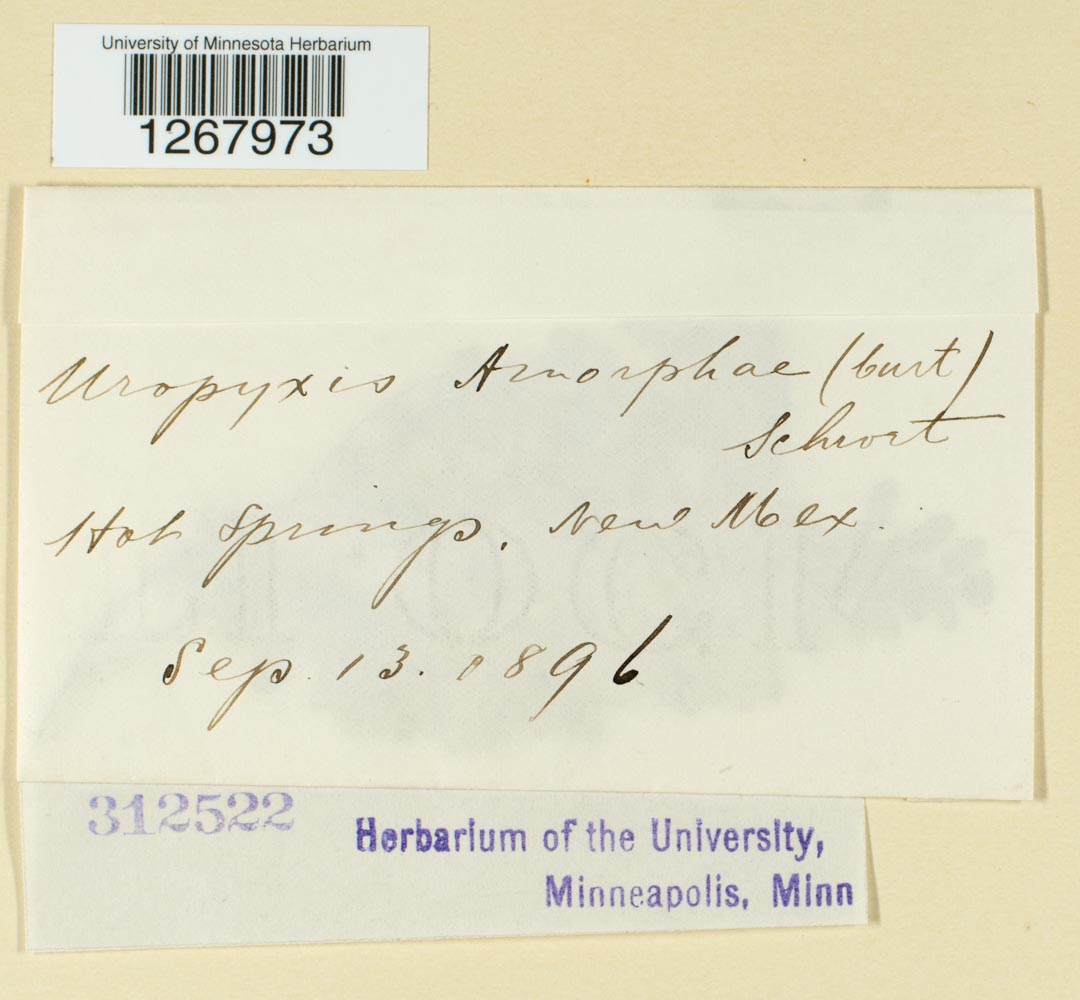 University of Minnesota Herbarium
1267973
Uropyxis Amorphae (Curt)
Schroet
Hot Springs, New Mex.
Sep. 13. 1896
312522
Herbarium of the University,
Minneapolis, Minn